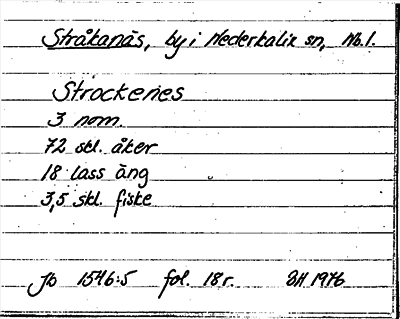 Stråkanäs, by i Nederkalix sn, Nb.l.
Strockenes
3 nom.
72 skl. åker
18 lass äng
3,5 skl. fiske
Jb 1546:5 fol. 18r. 1976